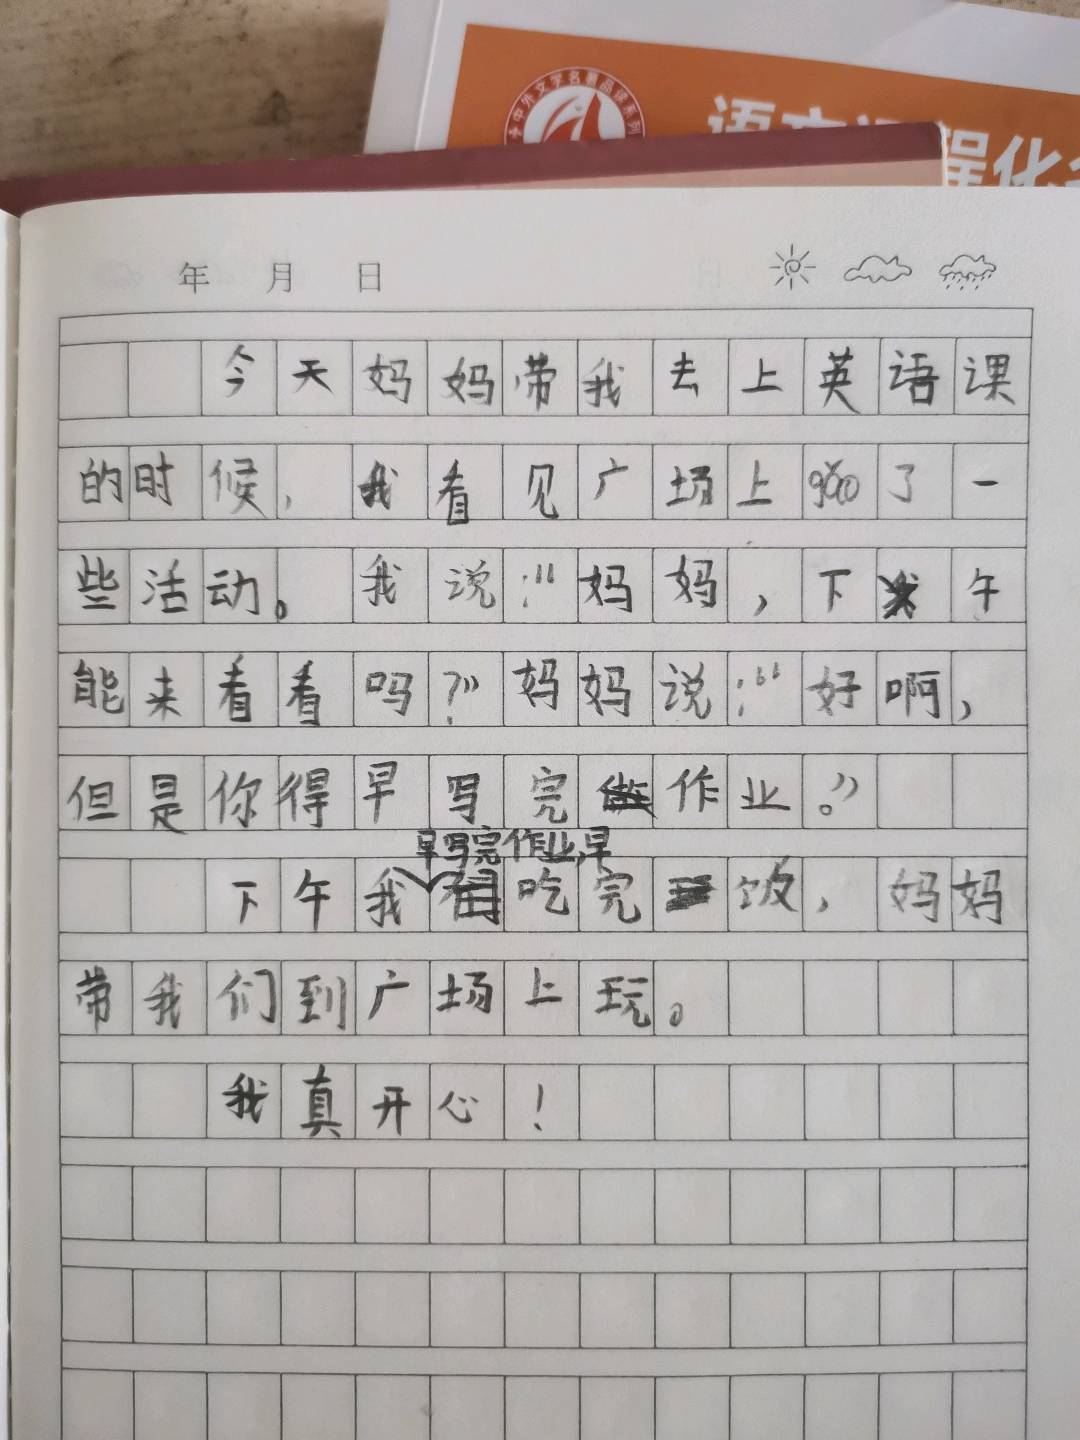 中外文学名著品读系列
语文课程化
年 月 日
今天妈妈带我去上英语课
的时候，我看见广场上gǎo了一
些活动。我说：“妈妈，下午
能来看看吗？”妈妈说：“好啊，
但是你得早写完作业。”
下午我早写完作业,早吃完饭，妈妈
带我们到广场上玩。
我真开心！